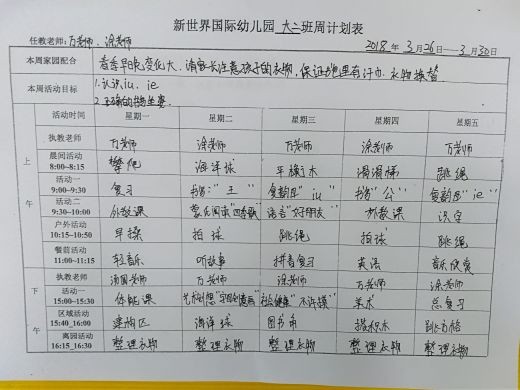 新世界国际幼儿园 大二 班周计划表
任教老师:万老师、涂老师 2018年3月26日—3月30日
本周家园配合 春季早晚变化大、请家长注意孩子的衣物,保证书包里有汗巾、衣物换替
本周活动目标 1.认识iu、ie
2.正确的
活动时间 星期一 星期二 星期三 星期四 星期五
执教老师 万老师 涂老师 万老师 涂老师 万老师
上午
晨间活动 8:00~8:15 攀爬 海洋球 平衡木 滑滑梯 跳绳
活动一 9:00~9:30 复习 书写“王” 复韵母“iu” 书写“公” 复韵母“ie”
活动二 9:30~10:00 外教课 蒙氏阅读“四季歌” 语言“好朋友” 外教课 识字
户外活动 10:15~10:50 早操 拍球 跳绳 拍球 跳绳
餐前活动 11:00~11:15 轻音乐 听故事 拼音复习 英语 音乐欣赏
下午
执教老师 涂老师 万老师 涂老师 万老师 涂老师
活动一 15:00~15:30 体能课 艺术创想 社会健康 美术 总复习
区域活动 15:40_16:00 建构区 海洋球 图书角 搭积木 跳方格
离园活动 16:15_16:30 整理衣物 整理衣物 整理衣物 整理衣物 整理衣物